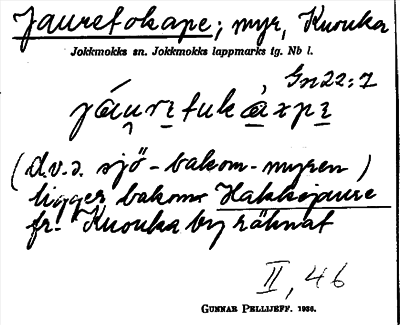 Jauretokape; myr, Knouka
Jokkmokks sn. Jokkmokks lappmarks tg. Nb l.
Gn22:1
(d.v.s. sjö-bakom-myren)
ligger bakom Hakkojaure
fr. Knouka by räknat
II, 46
GUNNAR PELLIJEFF. 1936.